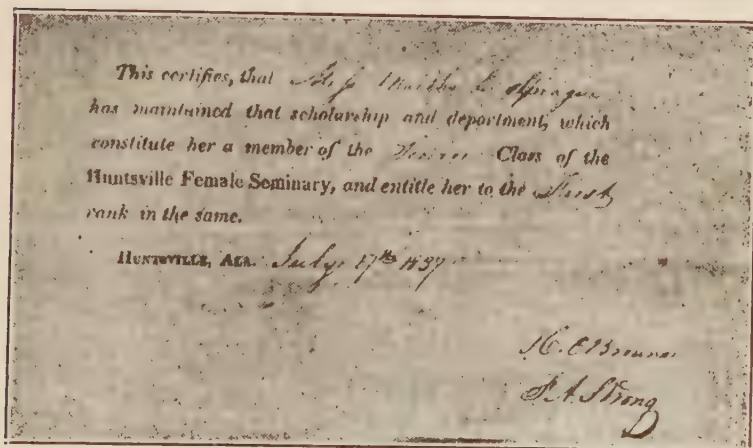 This certifies, that Miss Martha L. Sprague
has maintained that scholarship and department, which
constitute her a member of the Class of the
Huntsville Female Seminary, and entitle her to the First
rank in the same.
HUNTSVILLE, ALA. July 17th 1837
F. A. Strong